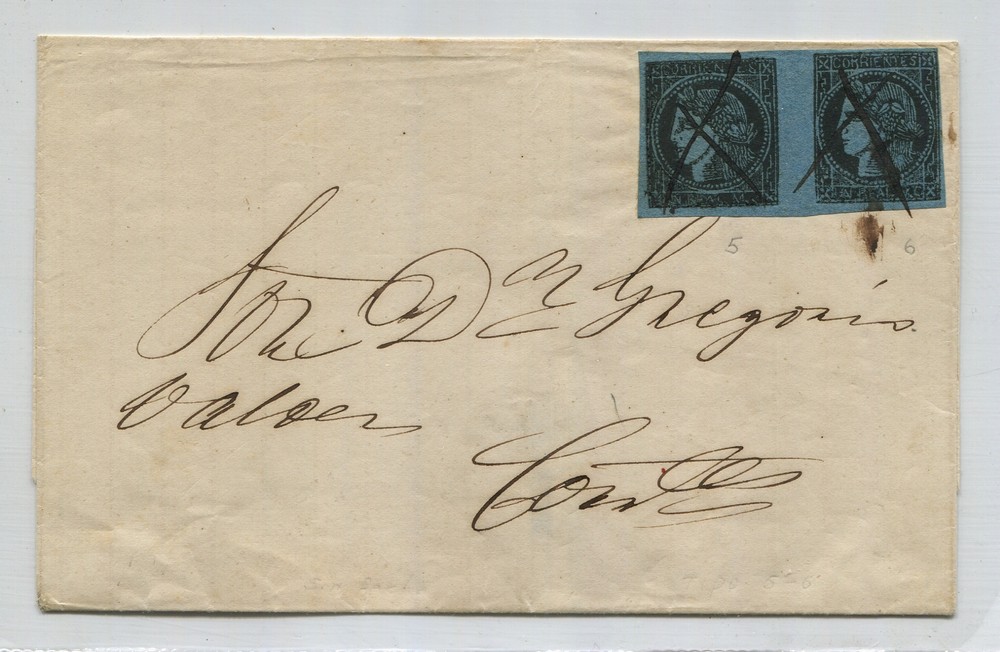 CORRIENTES CORRIENTES
5 6
Sor. Dn Gregorio
Valdes
Corrtes